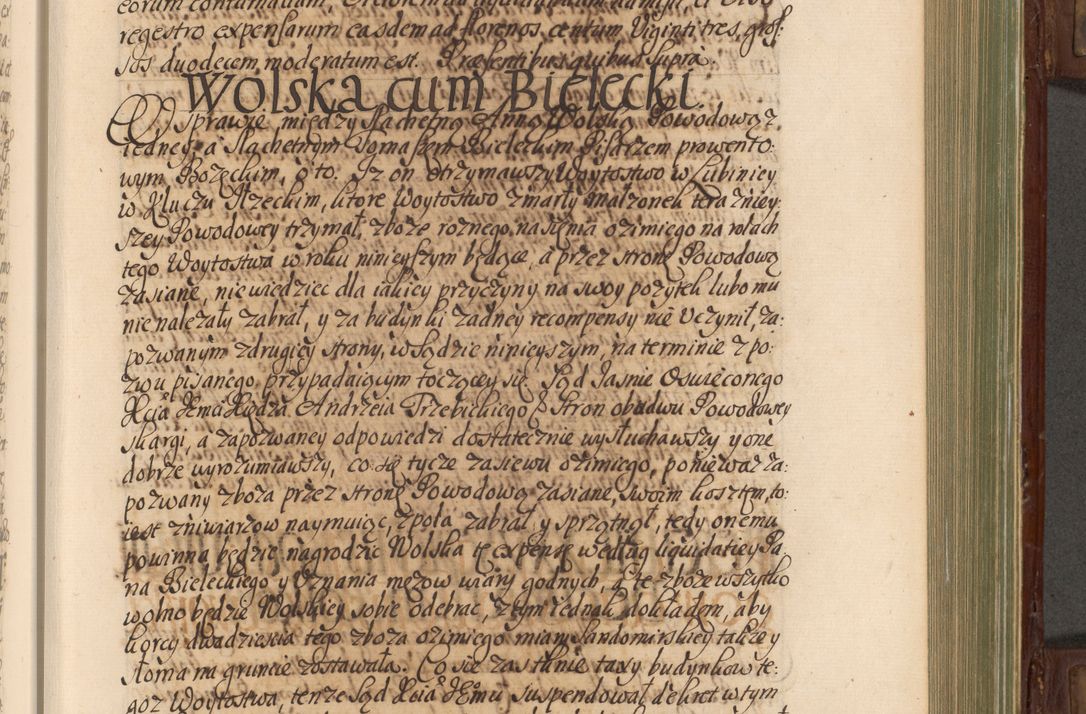 eorum contumaciam,
regestro expensarum easdem ad florenos centum Viginti tres, gros-
sos duodecem moderatum est. Præsentibus quibus supra.
Wolska cum Bielecki.
W sprawie między slachetną Anną Wolską Powodową z
iedney, a slachetnym Tomaszem Bieleckim Pisarzem prowento:
wym Bozęckim, o to. Iz on otrzymawszy Woytostwo w Lubiniey
w Kluczu Ilzeckim, ktore Woytostwo zmarły małzonek teraznięy:
szey Powodowey trzymał, zboze roznego nasięnia ozimiego na rolach
tego Woytostwa w roku ninieyszym będące, a przez stronę Powodową
zasiane, niewiedziec dla iakiey przyczyny na swoy pozytek lubo mu
nie nalezały zabrał, y za budynki zadney recompensy nie Uczynił, za:
pozwanym zdrugiey strony, w Sądzie ninieyszym, na terminie z po:
zwu pisanego przypadaiącym toczącey się. Sąd Iasnie Oswięconego
Xcia Jemci Xiędza Andrzeia Trzebickiego & Stron obudwu Powodowey
skargi, a zapozwaney odpowiedzi dostatecznie wysłuchawszy y one
dobrze wyrozumiawszy, co się tycze zasiewu ozimiego, poniewaz za:
pozwany zboza przez stronę Powodową zasiane, swoim kosztem, to:
iest zniwiarzow naymuiąc, z pola zabrał y sprzątnął, tedy onemu
powinna będzie nagrodzic Wolska tę expensę według liquidatiey Pa:
na Bieleckiego y Uznania męzow wiary godnych, a te zboze wszytko
wolno będzie Wolskiey sobie odebrac, z tym iednak dokładem, aby
korcy dwadziescia tego zboza ozimiego miary Sandomirskiey takze y
słoma na gruncie zostawała. Co się zas tknie taxy budynkow te:
goz Woytostwa, tenze Sąd Xcia Jemci suspendował dekret w tym